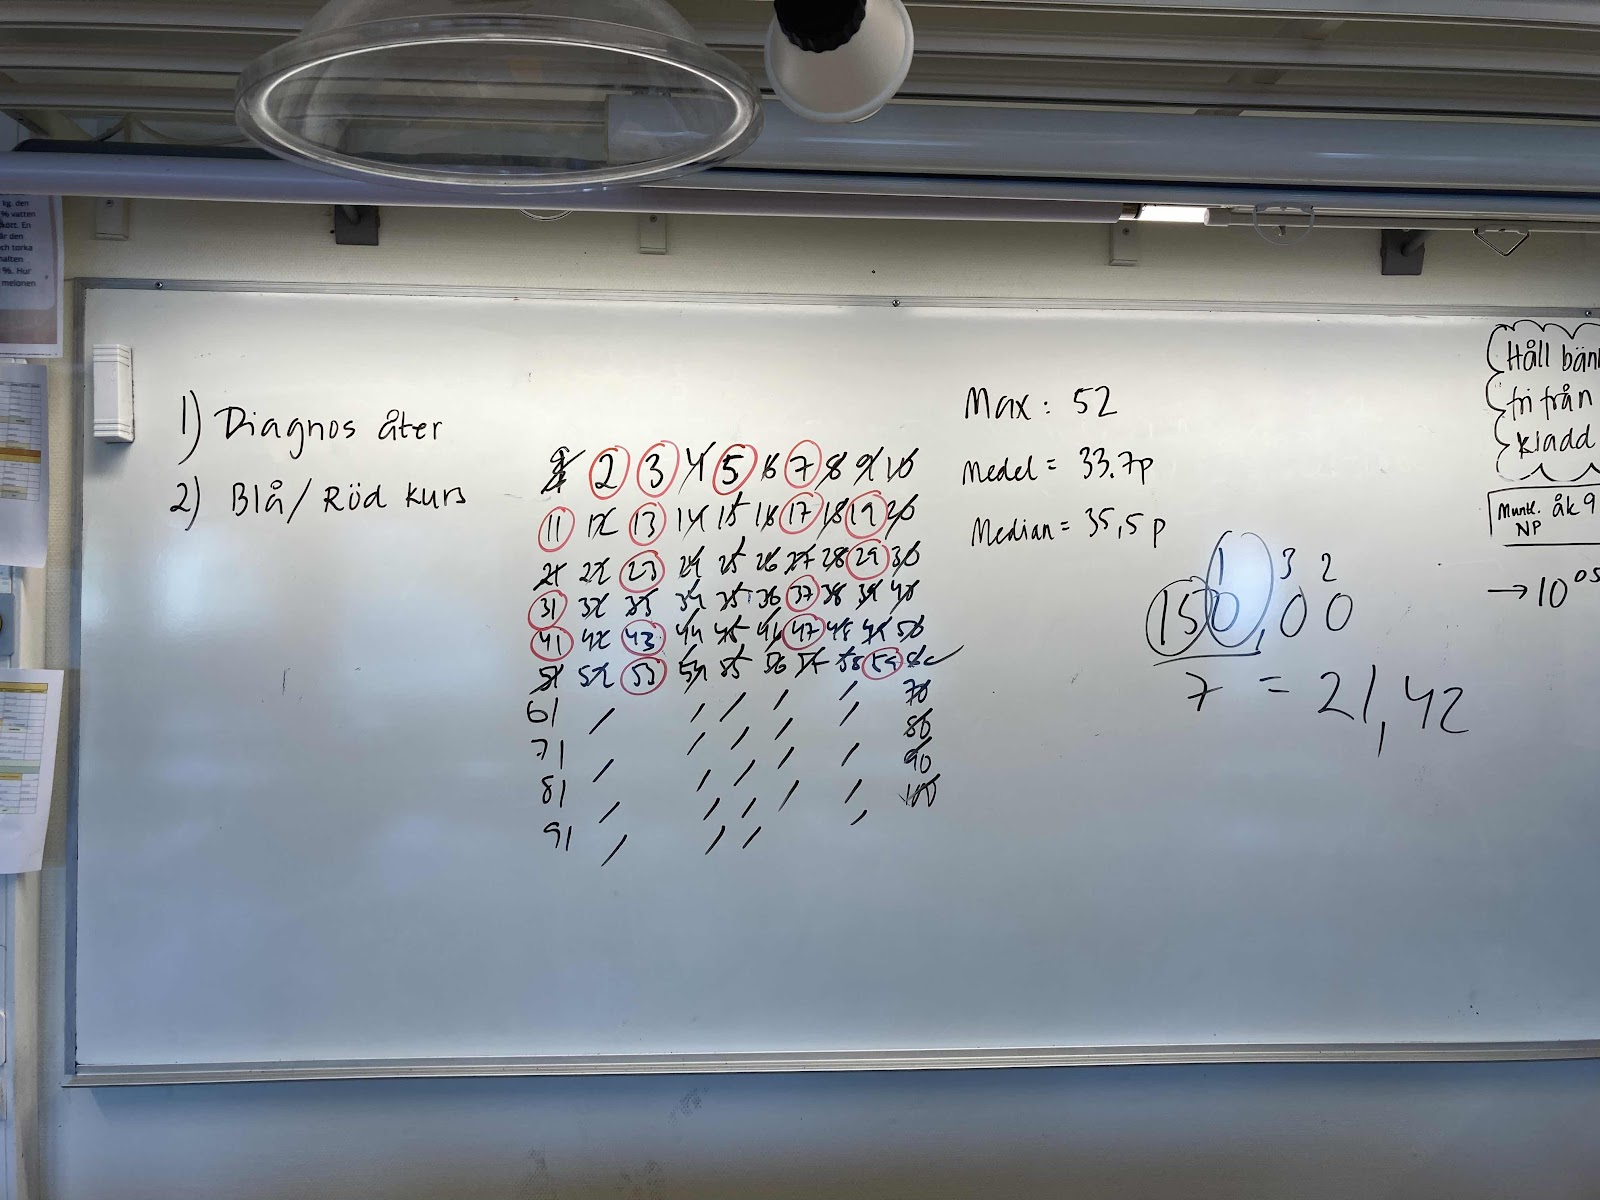 kg. den
% vatten
En
är den
och torka
halten
%. Hur
melonen
1) Diagnos åter
2) Blå/Röd kurs
1 2 3 4 5 6 7 8 9 10
11 12 13 14 15 16 17 18 19 20
21 22 23 24 25 26 27 28 29 30
31 32 33 34 35 36 37 38 39 40
41 42 43 44 45 46 47 48 49 50
51 52 53 54 55 56 57 58 59 60
70
61
80
71
90
81
100
91
Max: 52
Medel = 33.7p
Median = 35,5 p
1 3 2
150,00
7 = 21,42
Håll bän
fri från
kladd
Muntl. åk 9
NP
→ 10 05